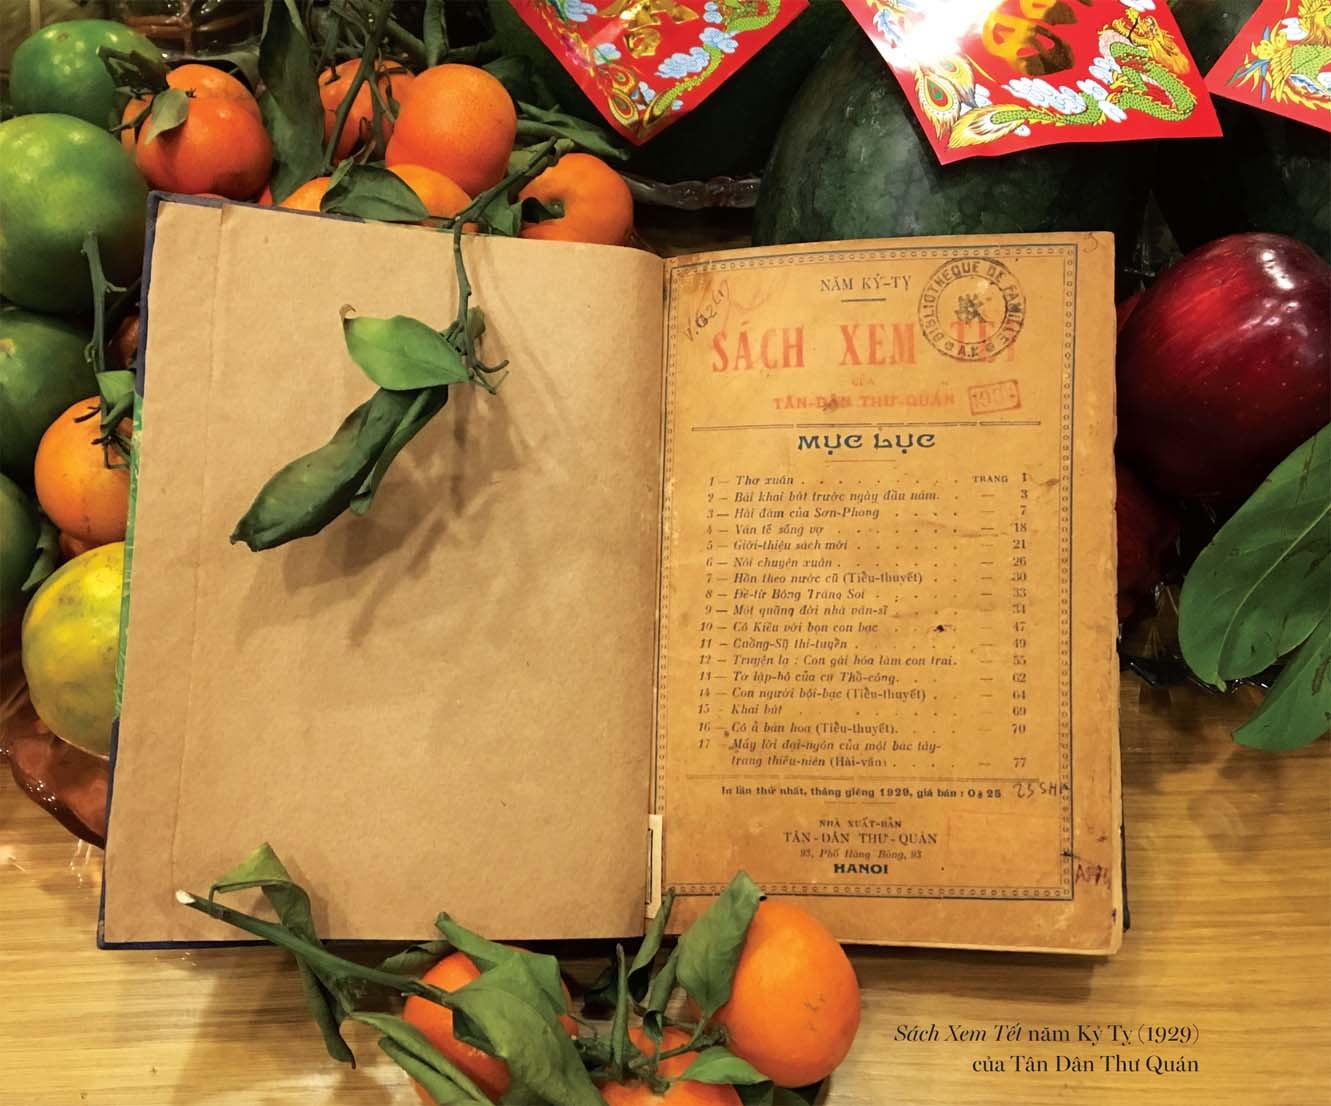 NĂM KỶ-TỴ
BIBLIOTHEQUE DE FAMILLE
A.K
SÁCH XEM TẾT
CỦA
TÂN-DÂN THƯ-QUÁN
MỤC LỤC
1 — Thơ xuân . . . . . . . . . TRANG 1
2 — Bài khai bút trước ngày đầu năm. . — 3
3 — Hài đàm của Sơn-Phong . . . . — 7
4 — Văn tế sống vợ . . . . . . . — 18
5 — Giới-thiệu sách mới . . . . . . — 21
6 — Nói chuyện xuân . . . . . . . — 26
7 — Hồn theo nước cũ (Tiểu-thuyết) . . — 30
8 — Đề-từ Bóng Trăng Soi . . . . . — 33
9 — Một quãng đời nhà văn-sĩ . . . . — 34
10 — Cô Kiều với bọn con bạc . . . . — 47
11 — Cuồng-Sỹ thi-tuyển . . . . . . — 49
12 — Truyện lạ : Con gái hóa làm con trai. — 55
13 — Tờ lập-hô của cụ Thổ-công. . . . — 62
14 — Con người bội-bạc (Tiểu-thuyết) . . — 64
15 - Khai bút . . . . . . . . — 69
16 — Cô ả bán hoa (Tiểu-thuyết). . . . — 70
17 - Mấy lời đại-ngôn của một bác tây-
trang thiếu-niên (Hài-văn) . . . . — 77
In lần thứ nhất, tháng giêng 1929, giá bán : 0$25
NHÀ XUẤT-BẢN
TÂN-DÂN THƯ-QUÁN
93, Phố Hàng Bông, 93
HANOI
Sách Xem Tết năm Kỷ Tỵ (1929)
của Tân Dân Thư Quán